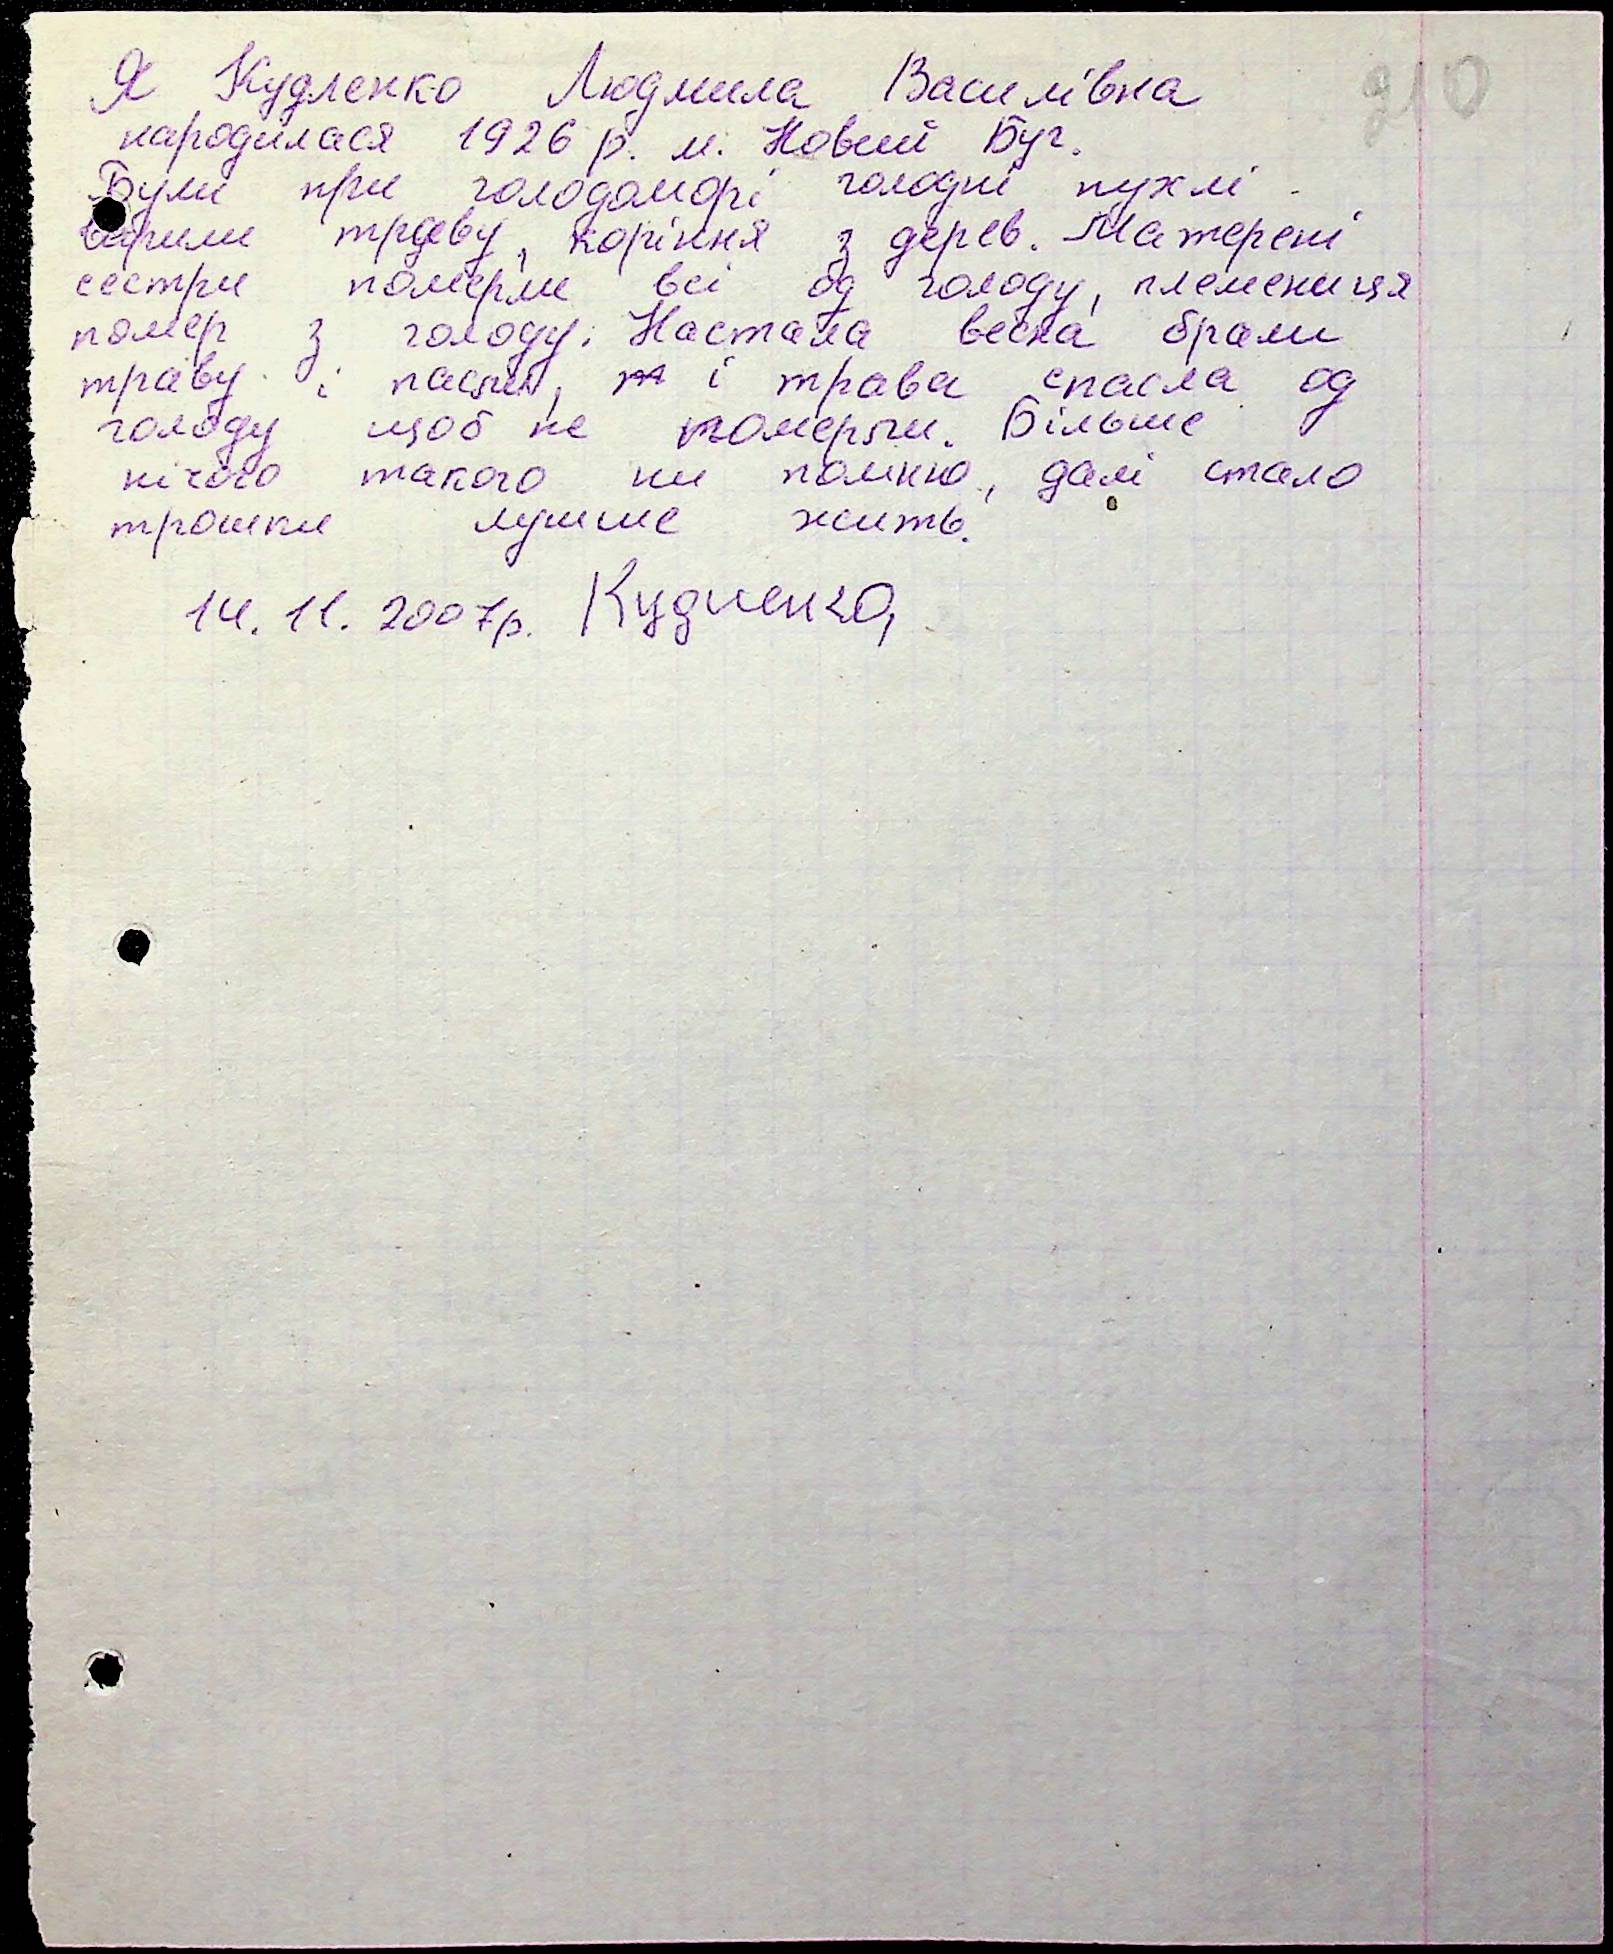 Я Кудленко Людмила Василівна
народилася 1926 р. м. Новий Буг.
Були при голодоморі голодні пухлі
варили трAву, коріння з дерев. Матерені
сестри померли всі од голоду, племениця
помер з голоду. Настала весна брали
траву і пасли, і трава спасла од
голоду щоб не померти. Більше
нічого такого ни помню, далі стало
трошки лучше жить.
14.11.2007р. Кудленко
210